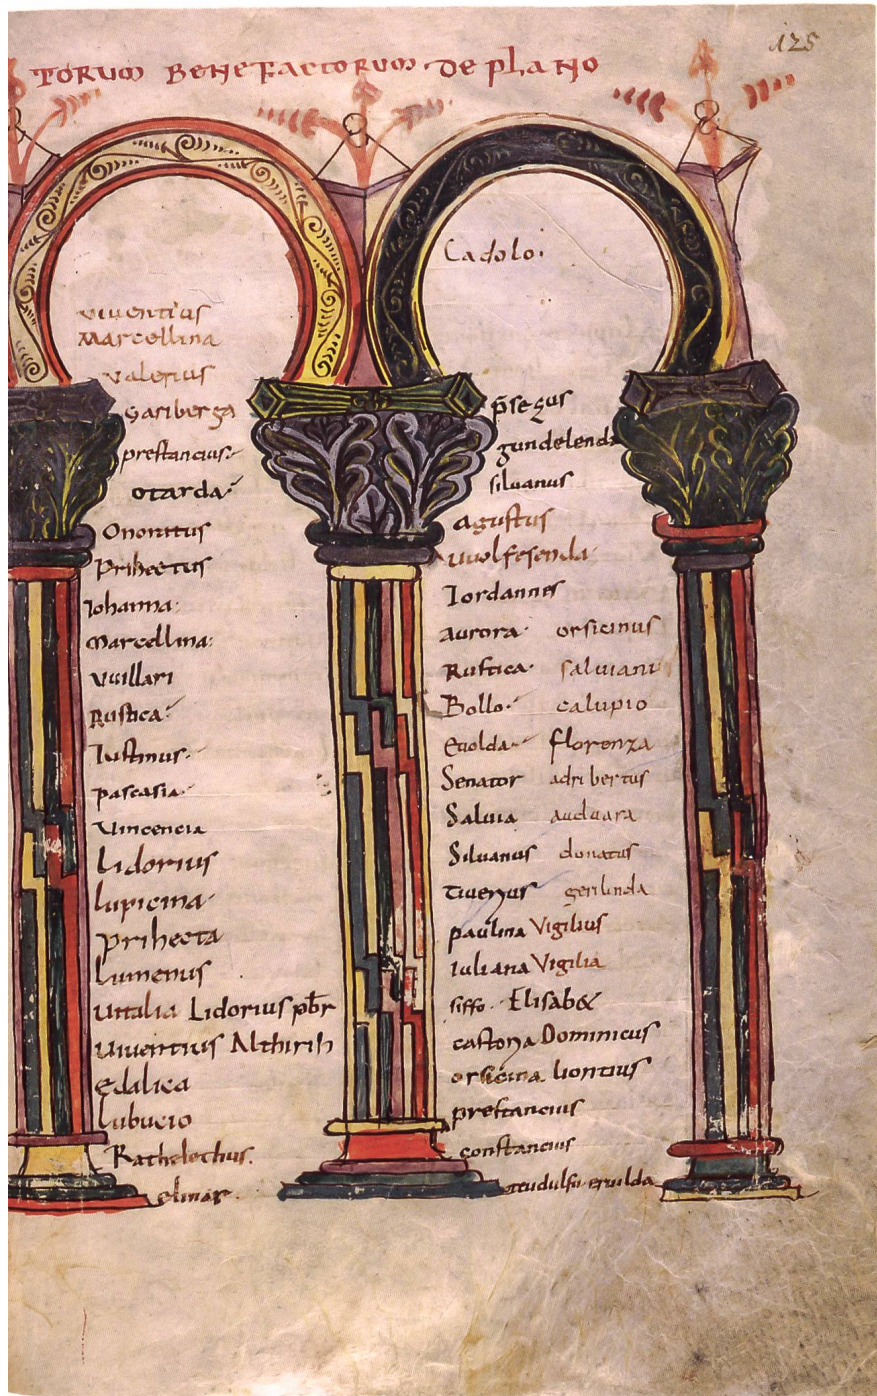 125
TORUM BENEFACTORUM DE PLANO
viventius
Marcellina
valerius
Gariberga
prestancius
otarda
Onoratus
Prihectus
Iohanna
Marcellina
Vuillari
Rustica
Iustinus
pascasia
Vincencia
Lidorius
Lupicina
prihecta
Lumenus
Uitalia Lidorius pbr
Uiventius Althirih
Edalica
Lubucio
Rathelechus
elmar
Cadolo
gundelend
siluanus
Agustus
vuolfesinda
Iordannes
Aurora orsicinus
Rustica saluianu
Bollo calupio
florenza
Senator adribertus
Saluia auduara
Siluanus donatus
gerlinda
paulina Vigilius
Iuliana Vigilia
siffo Elisab&
castoria Dominicus
orsicina liontius
prestancius
constancius